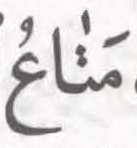 مَتٰاعُ